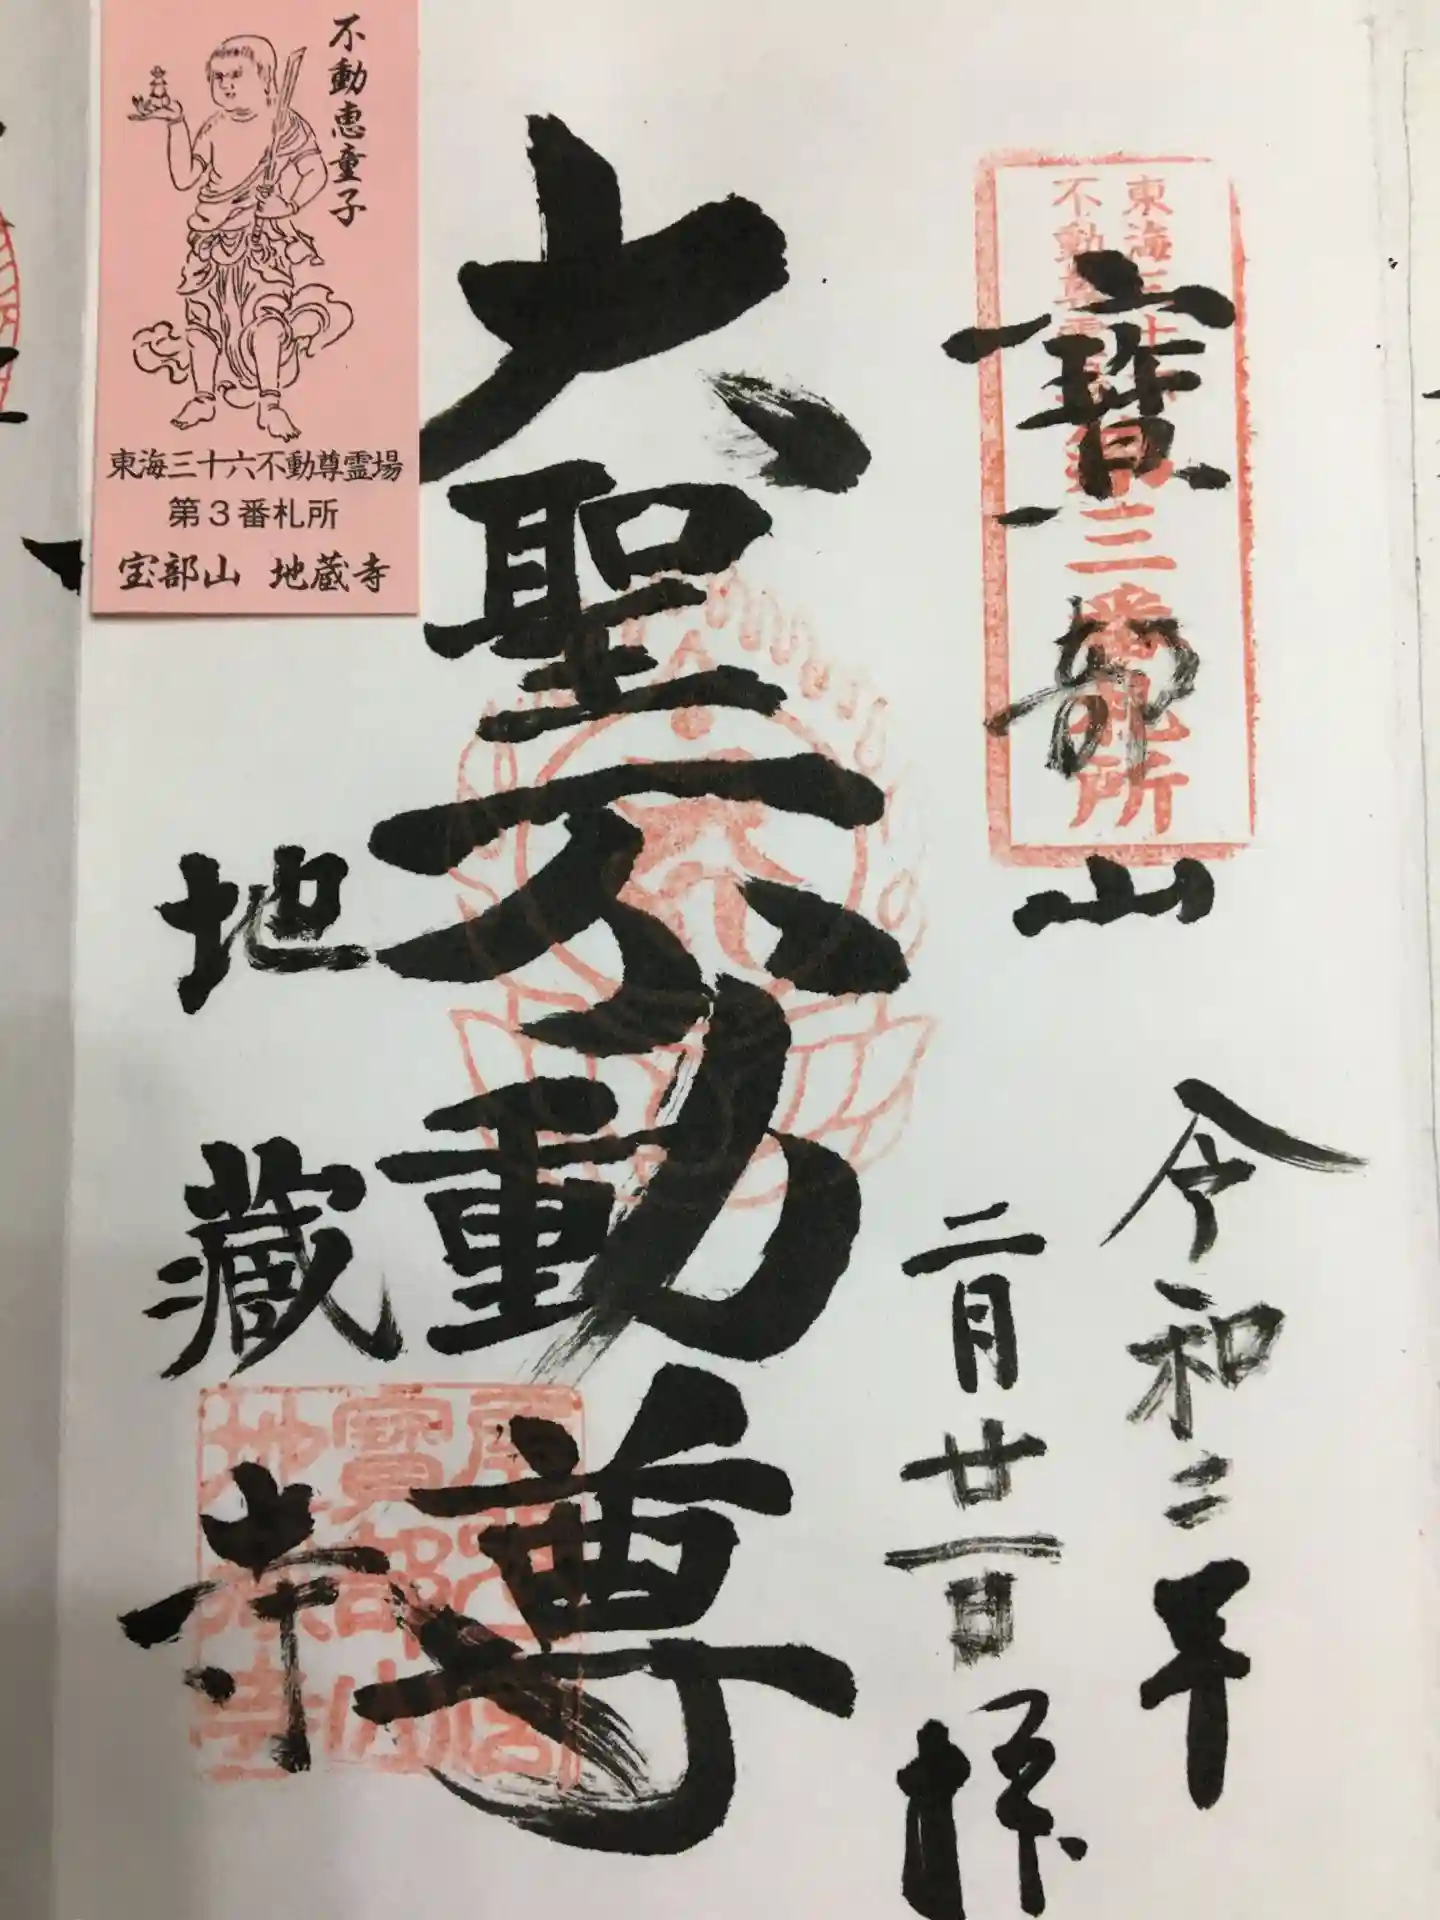 東海三十六
不動尊霊場
第三番札所
寶部山
令和二年
二月廿一日拝
大聖不動尊
地藏寺
寶部山
不動恵童子
東海三十六不動尊霊場
第3番札所
宝部山 地蔵寺